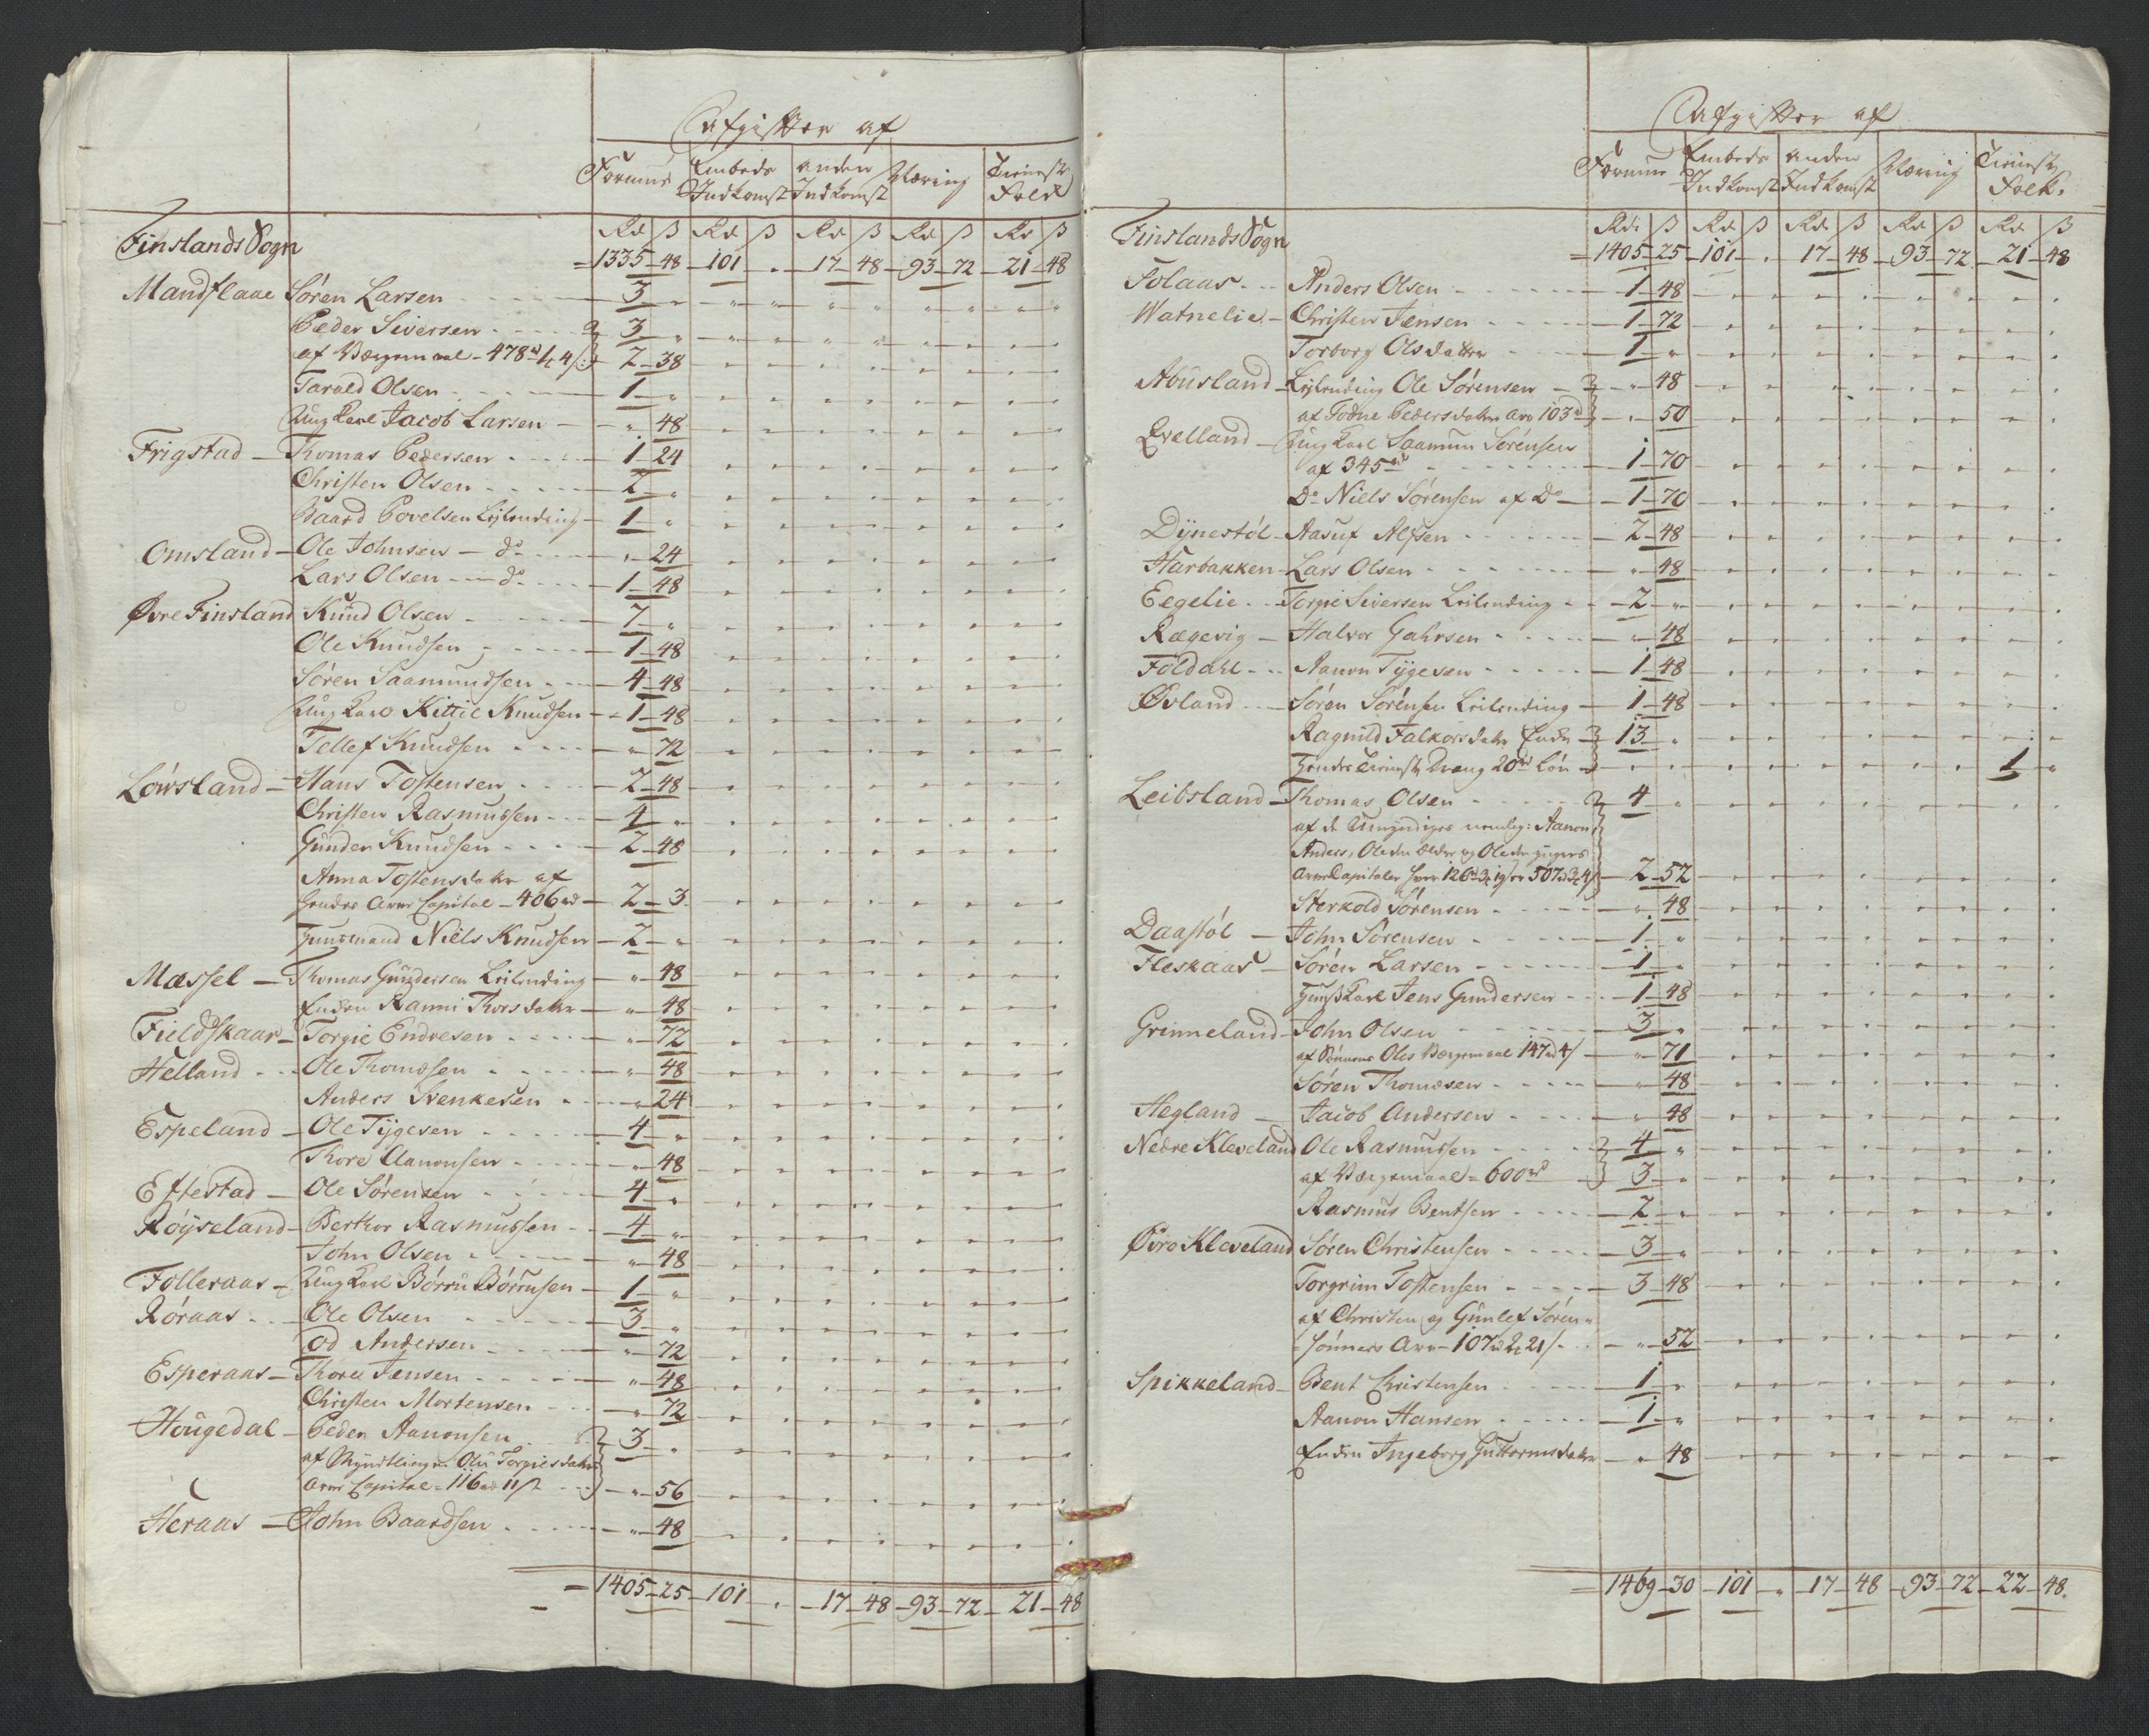 Afgifter af
Formue Embeds Indkomst anden Indkomst Næring Tieniste Folk
Rd ß Rd ß Rd ß Rd ß Rd ß
Finslands Sogn
1335 - 48 - 101 - " - 17 - 48 - 93 - 72 - 21 - 48
Mandflaae Søren Larsen 3 "
Peder Siversen 3 "
af Værgemaal - 478 rd 1 4 ß 2 - 38
Tarald Olsen 1 "
Ung Karl Jacob Larsen " 48
Frigstad - Thomas Pedersen 1 - 24
Christen Olsen 2 "
Baard Povelsen Lejlending 1 "
Omsland - Ole Johnsen - do " 24
Lars Olsen - do 1 - 48
Øvre Finsland Knud Olsen 7 "
Ole Knudsen 1 - 48
Søren Saamundsen 4 - 48
Ung Karl Kittil Knudsen 1 - 48
Tellef Knudsen " 72
Løwsland - Hans Tostensen 2 - 48
Christen Rasmussen 4 "
Gunder Knudsen 2 - 48
Anna Tostensdatter af
hendes Arve Capital - 406 rd 2 - 3
Huusmand Niels Knudsen 2 "
Mæssel - Thomas Gundersen Leilending " 48
Enken Ranni Thorsdatter " 48
Fieldskaar - Torgie Endresen " 72
Helland - Ole Thomesen " 48
Anders Svenkesen " 24
Espeland - Ole Tygesen 4 "
Thore Aanonsen " 48
Eftestad - Ole Sørensen 4 "
Røyseland - Berthor Rasmussen 4 "
John Olsen " 48
Folleraas - Ung Karl Børru Børrusen 1 "
Røraas - Ole Olsen 3 "
Od Andersen " 72
Esperaas - Thore Jensen " 48
Christen Mortensen " 72
Hougedal - Peder Aanonsen 3 "
af Myndtlingen Olu Torgiesdatters
Arve Capital - 116 rd 11 ß " 56
Heraas - John Baardsen " 48
1405 - 25 - 101 - " - 17 - 48 - 93 - 72 - 21 - 48
Afgifter af
Formue Embeds Indkomst anden Indkomst Næring Tieniste Folk.
Rd ß Rd ß Rd ß Rd ß Rd ß
Finslands Sogn
1405 - 25 - 101 - " 17 - 48 - 93 - 72 - 21 - 48
Folaas - Anders Olsen 1 - 48
Watnelie - Christen Jensen 1 - 72
Torborg Olsdatter 1 "
Abusland - Lejlending Ole Sørensen " 48
af Todne Pedersdatter Arv 103 rd " 50
Qvelland - Ung Karl Saamun Sørensen
af 345 rd 1 - 70
Do Niels Sørensen af Do 1 - 70
Dynestøl - Aasuf Alfsen 2 - 48
Harbakken - Lars Olsen " 48
Eegelie - Torgie Siversen Leilending 2 "
Rægevig - Halvor Gahrsen " 48
Foldahl - Aanon Tygesen 1 - 48
Øvland - Søren Sørensen Leilending 1 - 48
Ragnild Falkorsdatter Enke 13 "
hendes Tieniste Dreng 20 rd Løn 1 "
Leibsland - Thomas Olsen 4 "
af de Umyndiges nemlig: Aanon,
Anders, Ole den ældre og Ole den yngres
Arve Capitaler hver 126 rd 3 19 ß er 507 rd 3 4 ß 2 - 52
Sterkold Sørensen " 48
Daastøl - John Sørensen 1 "
Fleskaas - Søren Larsen 1 "
Huuskarl Jens Gundersen 1 - 48
Grimeland - John Olsen 3 "
af Sønnens Oles Værgemaal 147 rd 4 ß " 71
Søren Thomesen " 48
Hegland - Jacob Andersen " 48
Nedre Kleveland Ole Rasmussen 4 "
af Værgemaal - 600 rd 3 "
Rasmus Bentsen 2 "
Øvre Kleveland Søren Christensen 3 "
Torgrim Tostensen 3 - 48
af Christen og Gunlef Søren-
sønners Arv - 107 rd 2 21 ß " 52
Spikkeland - Bent Christensen 1 "
Aanon Hansen 1 "
Enken Ingeborg Guttormsdatter " 48
1469 - 30 - 101 - " - 17 - 48 - 93 - 72 - 22 - 48.